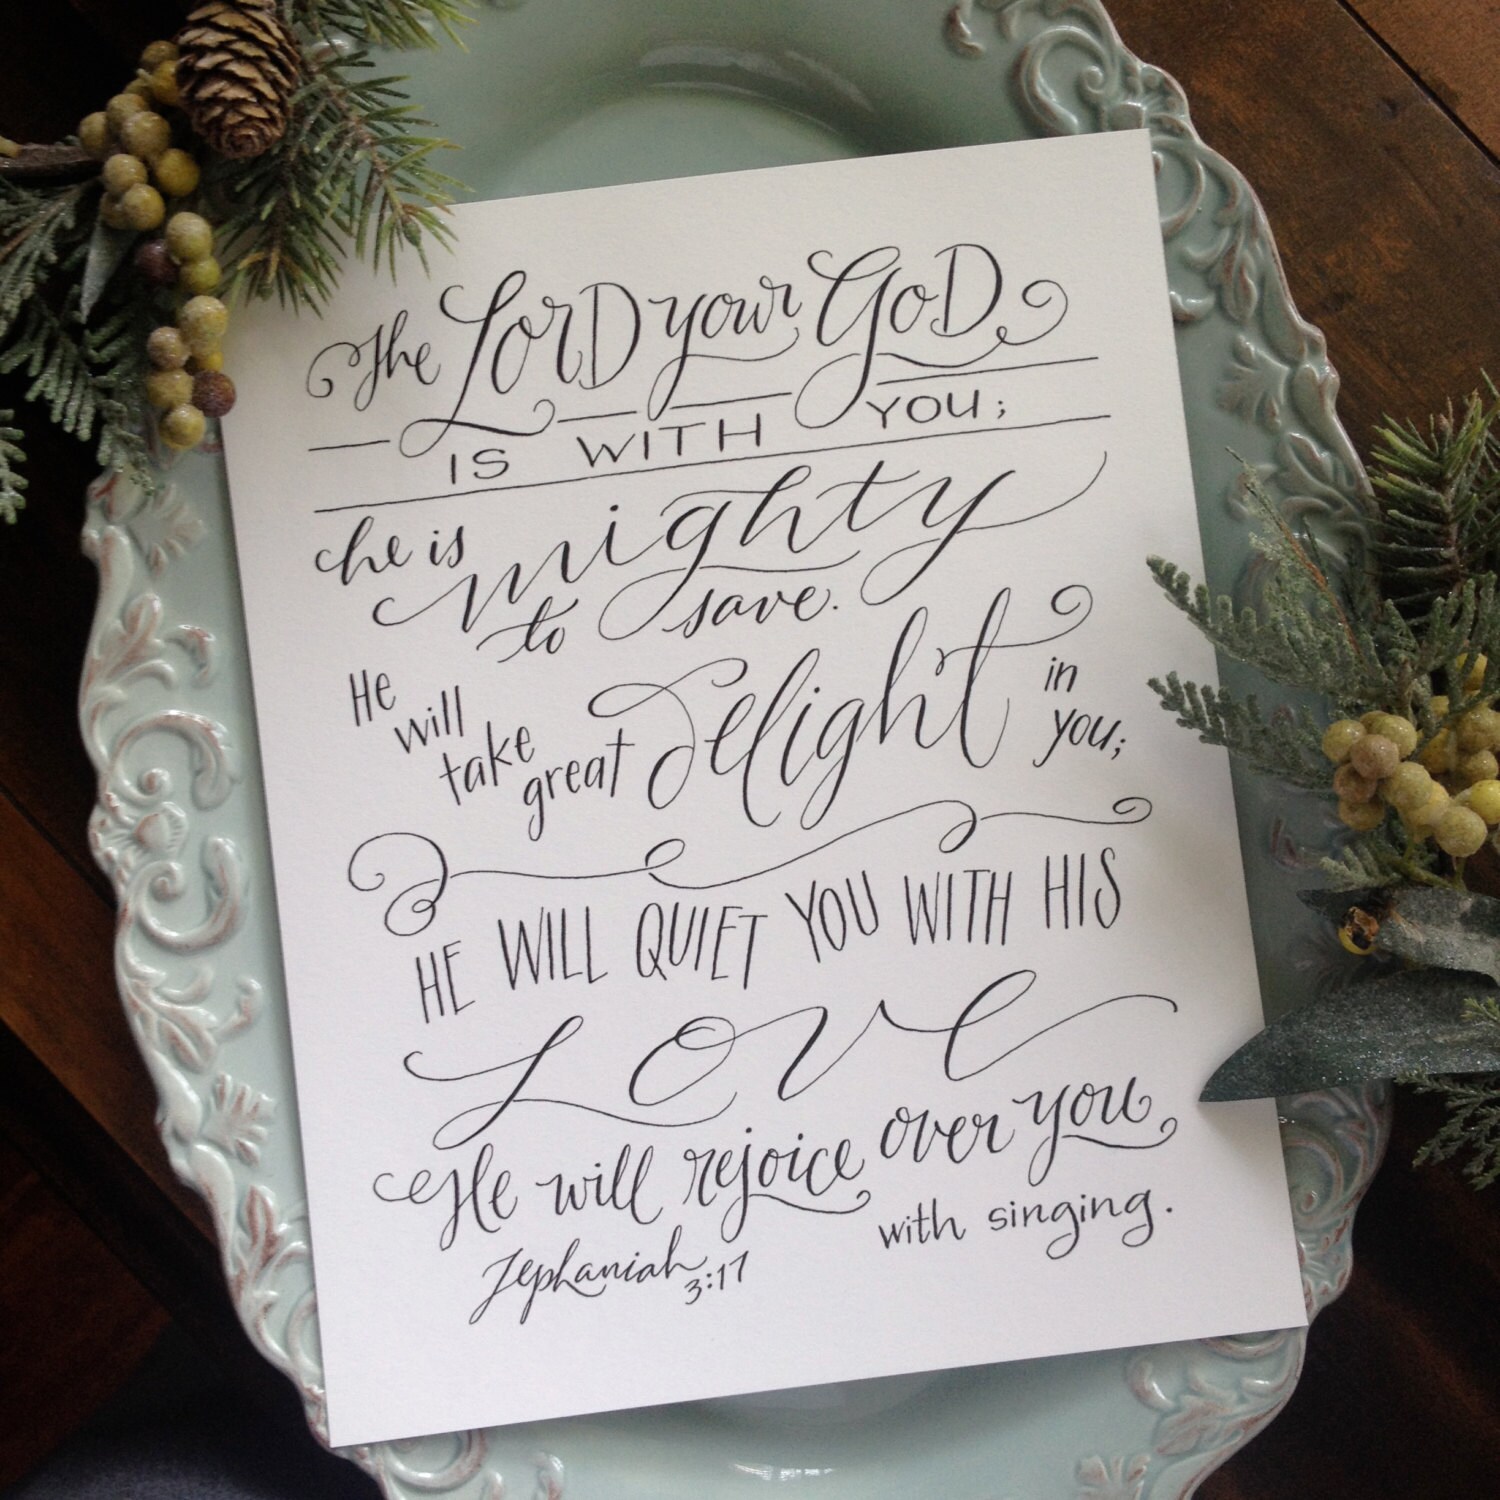 The LORD your GOD
IS WITH YOU;
he is mighty
to save.
He will take great delight in you;
HE WILL QUIET YOU WITH HIS
LOVE
He will rejoice over you,
with singing.
Zephaniah 3:17